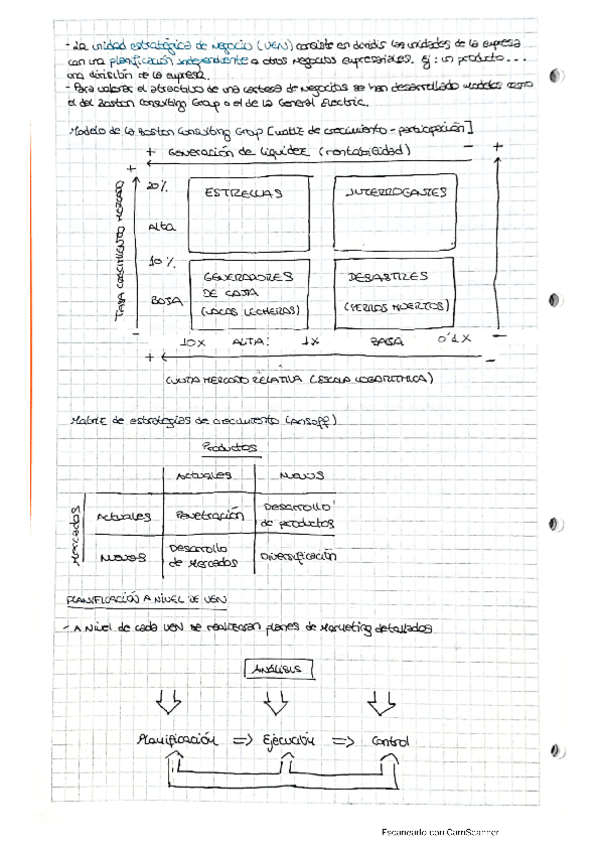 - La unidad estratégica de negocio (UEN) consiste en dividir las unidades de la empresa
con una planificación independiente a otros negocios empresariales. Ej: un producto...
una división de la empresa.
- Para valorar el atractivo de una cartera de negocios se han desarrollado modelos como
el del Boston Consulting Group o el de la General Electric.
Modelo de la Boston Consulting Group [matriz de crecimiento - participación]
+ Generación de liquidez (rentabilidad) - +
+
TASA CRECIMIENTO MERCADO
20%
ESTRELLAS INTERROGANTES
Alta
10%
GENERADORES DE CAJA (VACAS LECHERAS)
DESASTRES (PERROS MUERTOS)
BAJA
- -
10X ALTA 1X BAJA 0'1X
+ -
CUOTA MERCADO RELATIVA (ESCALA LOGARITMICA)
Matriz de estrategias de crecimiento (Ansoff)
Productos
Actuales Nuevos
Mercados
Actuales Penetración Desarrollo de productos
Nuevos Desarrollo de Mercados Diversificación
PLANIFICACIÓN A NIVEL DE UEN
- A Nivel de cada UEN se realizaran planes de Marketing detallados
ANÁLISIS
Planificación => Ejecución => Control
Escaneado con CamScanner